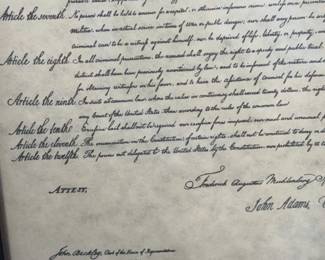 Article the seventh. No person shall be held to answer for a capital, or otherwise infamous crime, unless
Militia, when in actual service in time of War or public danger; nor shall any person be
criminal case to be a witness against himself, nor be deprived of life, liberty, or property,
Article the eighth. In all criminal prosecutions, the accused shall enjoy the right to a speedy and public trial,
district shall have been previously ascertained by law, and to be informed of the nature and
for obtaining witnesses in his favor, and to have the assistance of counsel for his defence
Article the ninth. In suits at common law, where the value in controversy shall exceed twenty dollars, the right
any Court of the United States, than according to the rules of the common law.
Article the tenth. Excessive bail shall not be required, nor excessive fines imposed, nor cruel and unusual
Article the eleventh. The enumeration in the Constitution, of certain rights, shall not be construed to deny or
Article the twelfth. The powers not delegated to the United States by the Constitution, nor prohibited by it to
ATTEST,
Frederick Augustus Muhlenberg
John Adams,
John Beckley, Clerk of the House of Representatives